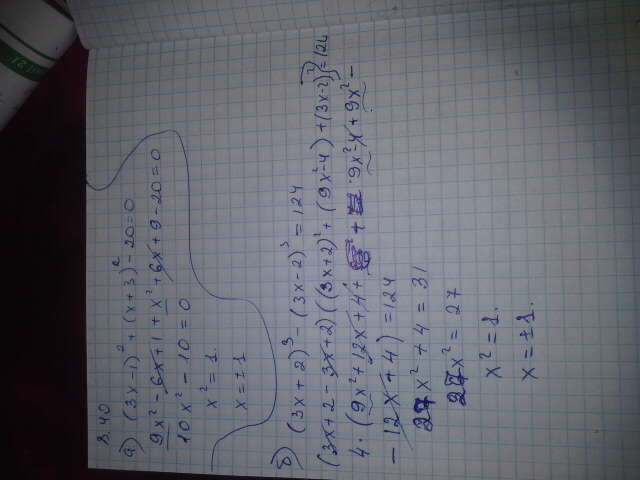 8.40
а) (3x-1)² + (x+3)² - 20 = 0
9x² - 6x + 1 + x² + 6x + 9 - 20 = 0
10x² - 10 = 0
x² = 1.
x = ±1
б) (3x+2)³ - (3x-2)³ = 124
(3x+2-3x+2)((3x+2)²+(9x²-4)+(3x-2)²)=124
4·(9x²+12x+4+ 9x²-4+9x²-
-12x+4)=124
27x² + 4 = 31
27x² = 27
x² = 1.
x = ±1.